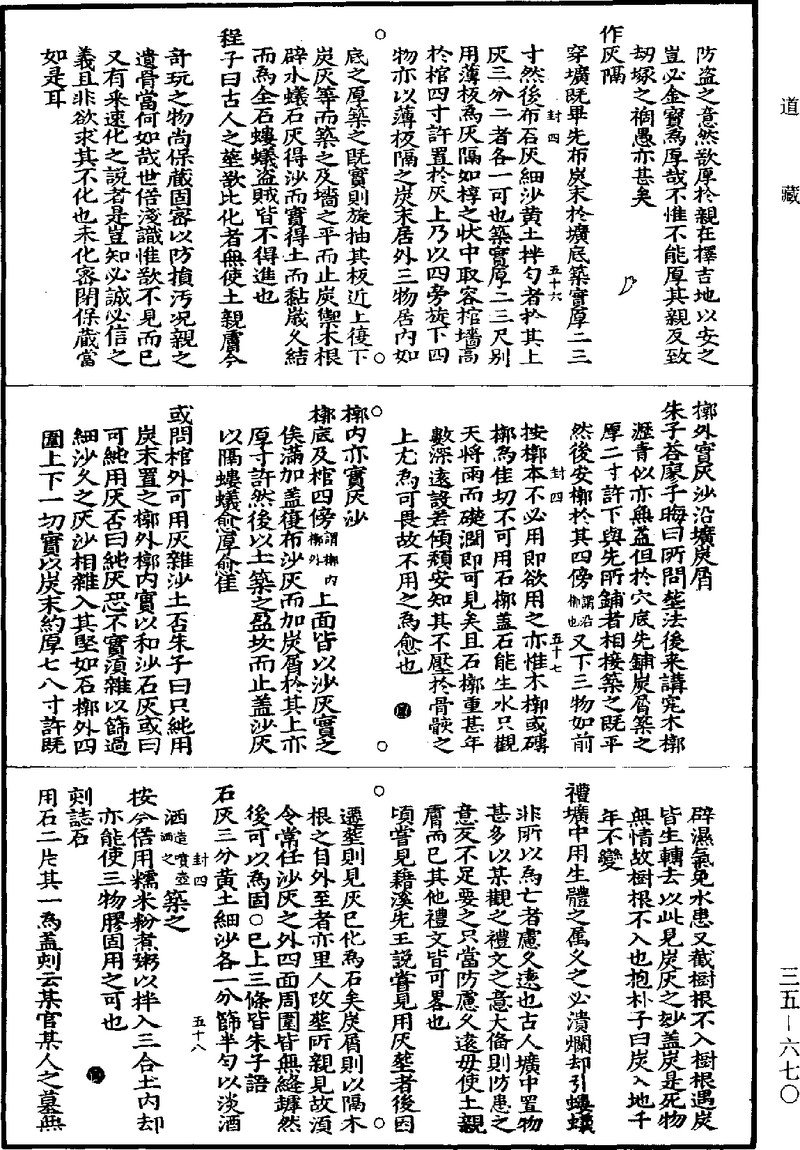 道藏
防盜之意然欲厚於親在擇吉地以安之
豈必金寶爲厚哉不惟不能厚其親反致
刼塚之禍愚亦甚矣
作灰隔
穿壙旣畢先布炭末於壙底築實厚二三
寸然後布石灰細沙黃土拌勻者於其上
封四
五十六
灰三分二者各一可也築實厚二三尺别
用薄板爲灰隔如椁之狀中取容棺墻高
於棺四寸許置於灰上乃以四旁旋下四
物亦以薄板隔之炭末居外三物居内如
底之厚築之旣實則旋抽其板近上復下
炭灰等而築之及墻之平而止炭禦木根
辟水蟻石灰得沙而實得土而黏歲久結
而爲全石螻蟻盜賊皆不得進也
程子曰古人之塟欲比化者無使土親膚今
奇玩之物尚保藏固密以防損汚况親之
遺骨當何如哉世俗淺識惟欲不見而已
又有乘速化之說者是豈知必誠必信之
義且非欲求其不化也未化密閉保藏當
如是耳
槨外實灰沙沿壙炭屑
朱子荅廖子晦曰所問塟法後來講究木槨
瀝青似亦無益但於穴底先鋪炭屑築之
厚二寸許下與先所鋪者相接築之旣平
然後安槨於其四傍謂沿槨也又下三物如前
封四
五十七
按槨本不必用即欲用之亦惟木槨或磚
槨爲佳切不可用石槨蓋石能生水只觀
天將雨而礎潤即可見矣且石槨重甚年
數深遠設若傾頹安知其不壓於骨骸之
上尤爲可畏故不用之爲愈也
槨内亦實灰沙
槨底及棺四傍謂槨内槨外上面皆以沙灰實之
俟滿加蓋復布沙灰而加炭屑於其上亦
厚寸許然後以土築之盈坎而止蓋沙灰
以隔螻蟻愈厚愈隹
或問棺外可用灰雜沙土否朱子曰只純用
炭末置之槨外槨内實以和沙石灰或曰
可純用灰否曰純灰恐不實須雜以篩過
細沙久之灰沙相雜入其堅如石槨外四
圍上下一切實以炭末約厚七八寸許旣
辟濕氣免水患又截樹根不入樹根遇炭
皆生轉去以此見炭灰之玅蓋炭是死物
無情故樹根不入也抱朴子曰炭入地千
年不變
禮壙中用生體之屬久之必潰爛却引螻蟻
非所以爲亡者慮久遠也古人壙中置物
甚多以某觀之禮文之意大僃則防患之
意反不足要之只當防慮久遠毋使土親
膚而已其他禮文皆可畧也
頃嘗見籍溪先王說嘗見用灰塟者後因
遷塟則見灰巳化爲石矣炭屑則以隔木
根之自外至者亦里人攻塟所親見故須
令常任沙灰之外四面周圍皆無縫罅然
後可以爲固〇已上三條皆朱子語
石灰三分黃土細沙各一分篩半勻以淡酒
封四
五十八
洒造噴壺洒之築之
按今俗用糯米粉煮粥以拌入三合土内却
亦能使三物膠固用之可也
刻誌石
用石二片其一爲蓋刻云某官某人之墓無
三五—六七〇